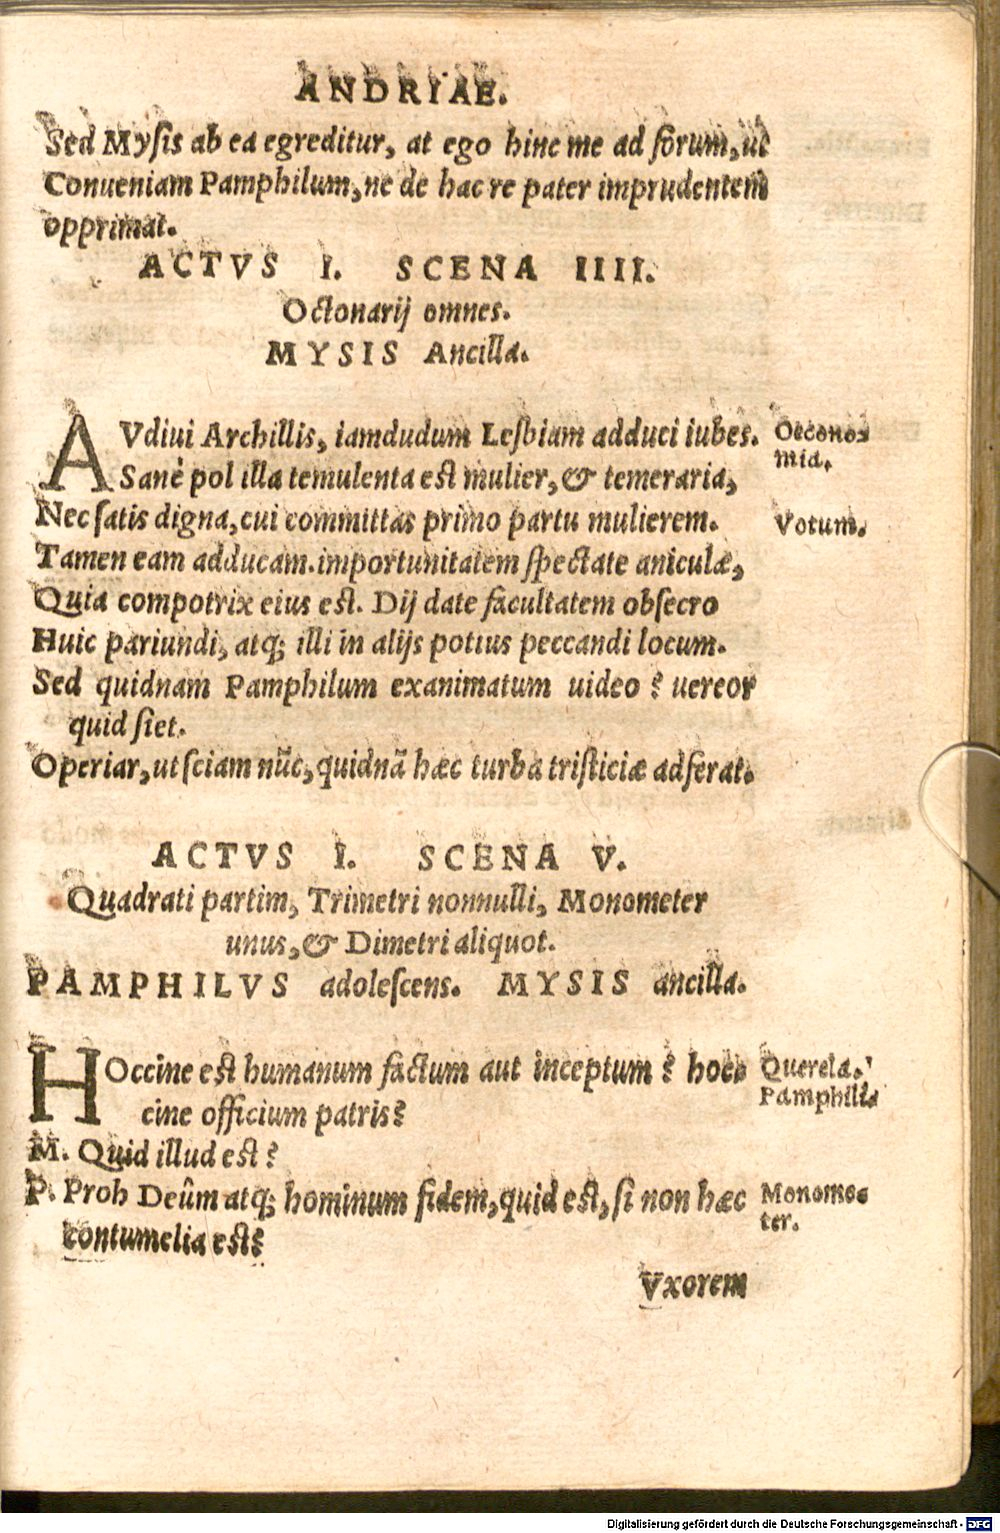 ANDRIAE.
Sed Mysis ab ea egreditur, at ego hinc me ad forum, ut
Conueniam Pamphilum, ne de hac re pater imprudentem
opprimat.
ACTVS I. SCENA IIII.
Octonarij omnes.
MYSIS Ancilla.
AVdiui Archillis, iamdudum Lesbiam adduci iubes. Oecono=
mia.
Sanè pol illa temulenta est mulier, & temeraria,
Nec satis digna, cui committas primo partu mulierem. Votum.
Tamen eam adducam. importunitatem spectate aniculæ,
Quia compotrix eius est. Dij date facultatem obsecro
Huic pariundi, atq; illi in alijs potius peccandi locum.
Sed quidnam Pamphilum exanimatum uideo? uereor
quid siet.
Operiar, ut sciam nūc, quidnā hæc turba tristiciæ adferat.
ACTVS I. SCENA V.
Quadrati partim, Trimetri nonnulli, Monometer
unus, & Dimetri aliquot.
PAMPHILVS adolescens. MYSIS ancilla.
HOccine est humanum factum aut inceptum? hoc= Querela
Pamphili.
cine officium patris?
M. Quid illud est?
P. Proh Deûm atq; hominum fidem, quid est, si non hæc Monome=
ter.
contumelia est?
Vxorem
Digitalisierung gefördert durch die Deutsche Forschungsgemeinschaft - DFG